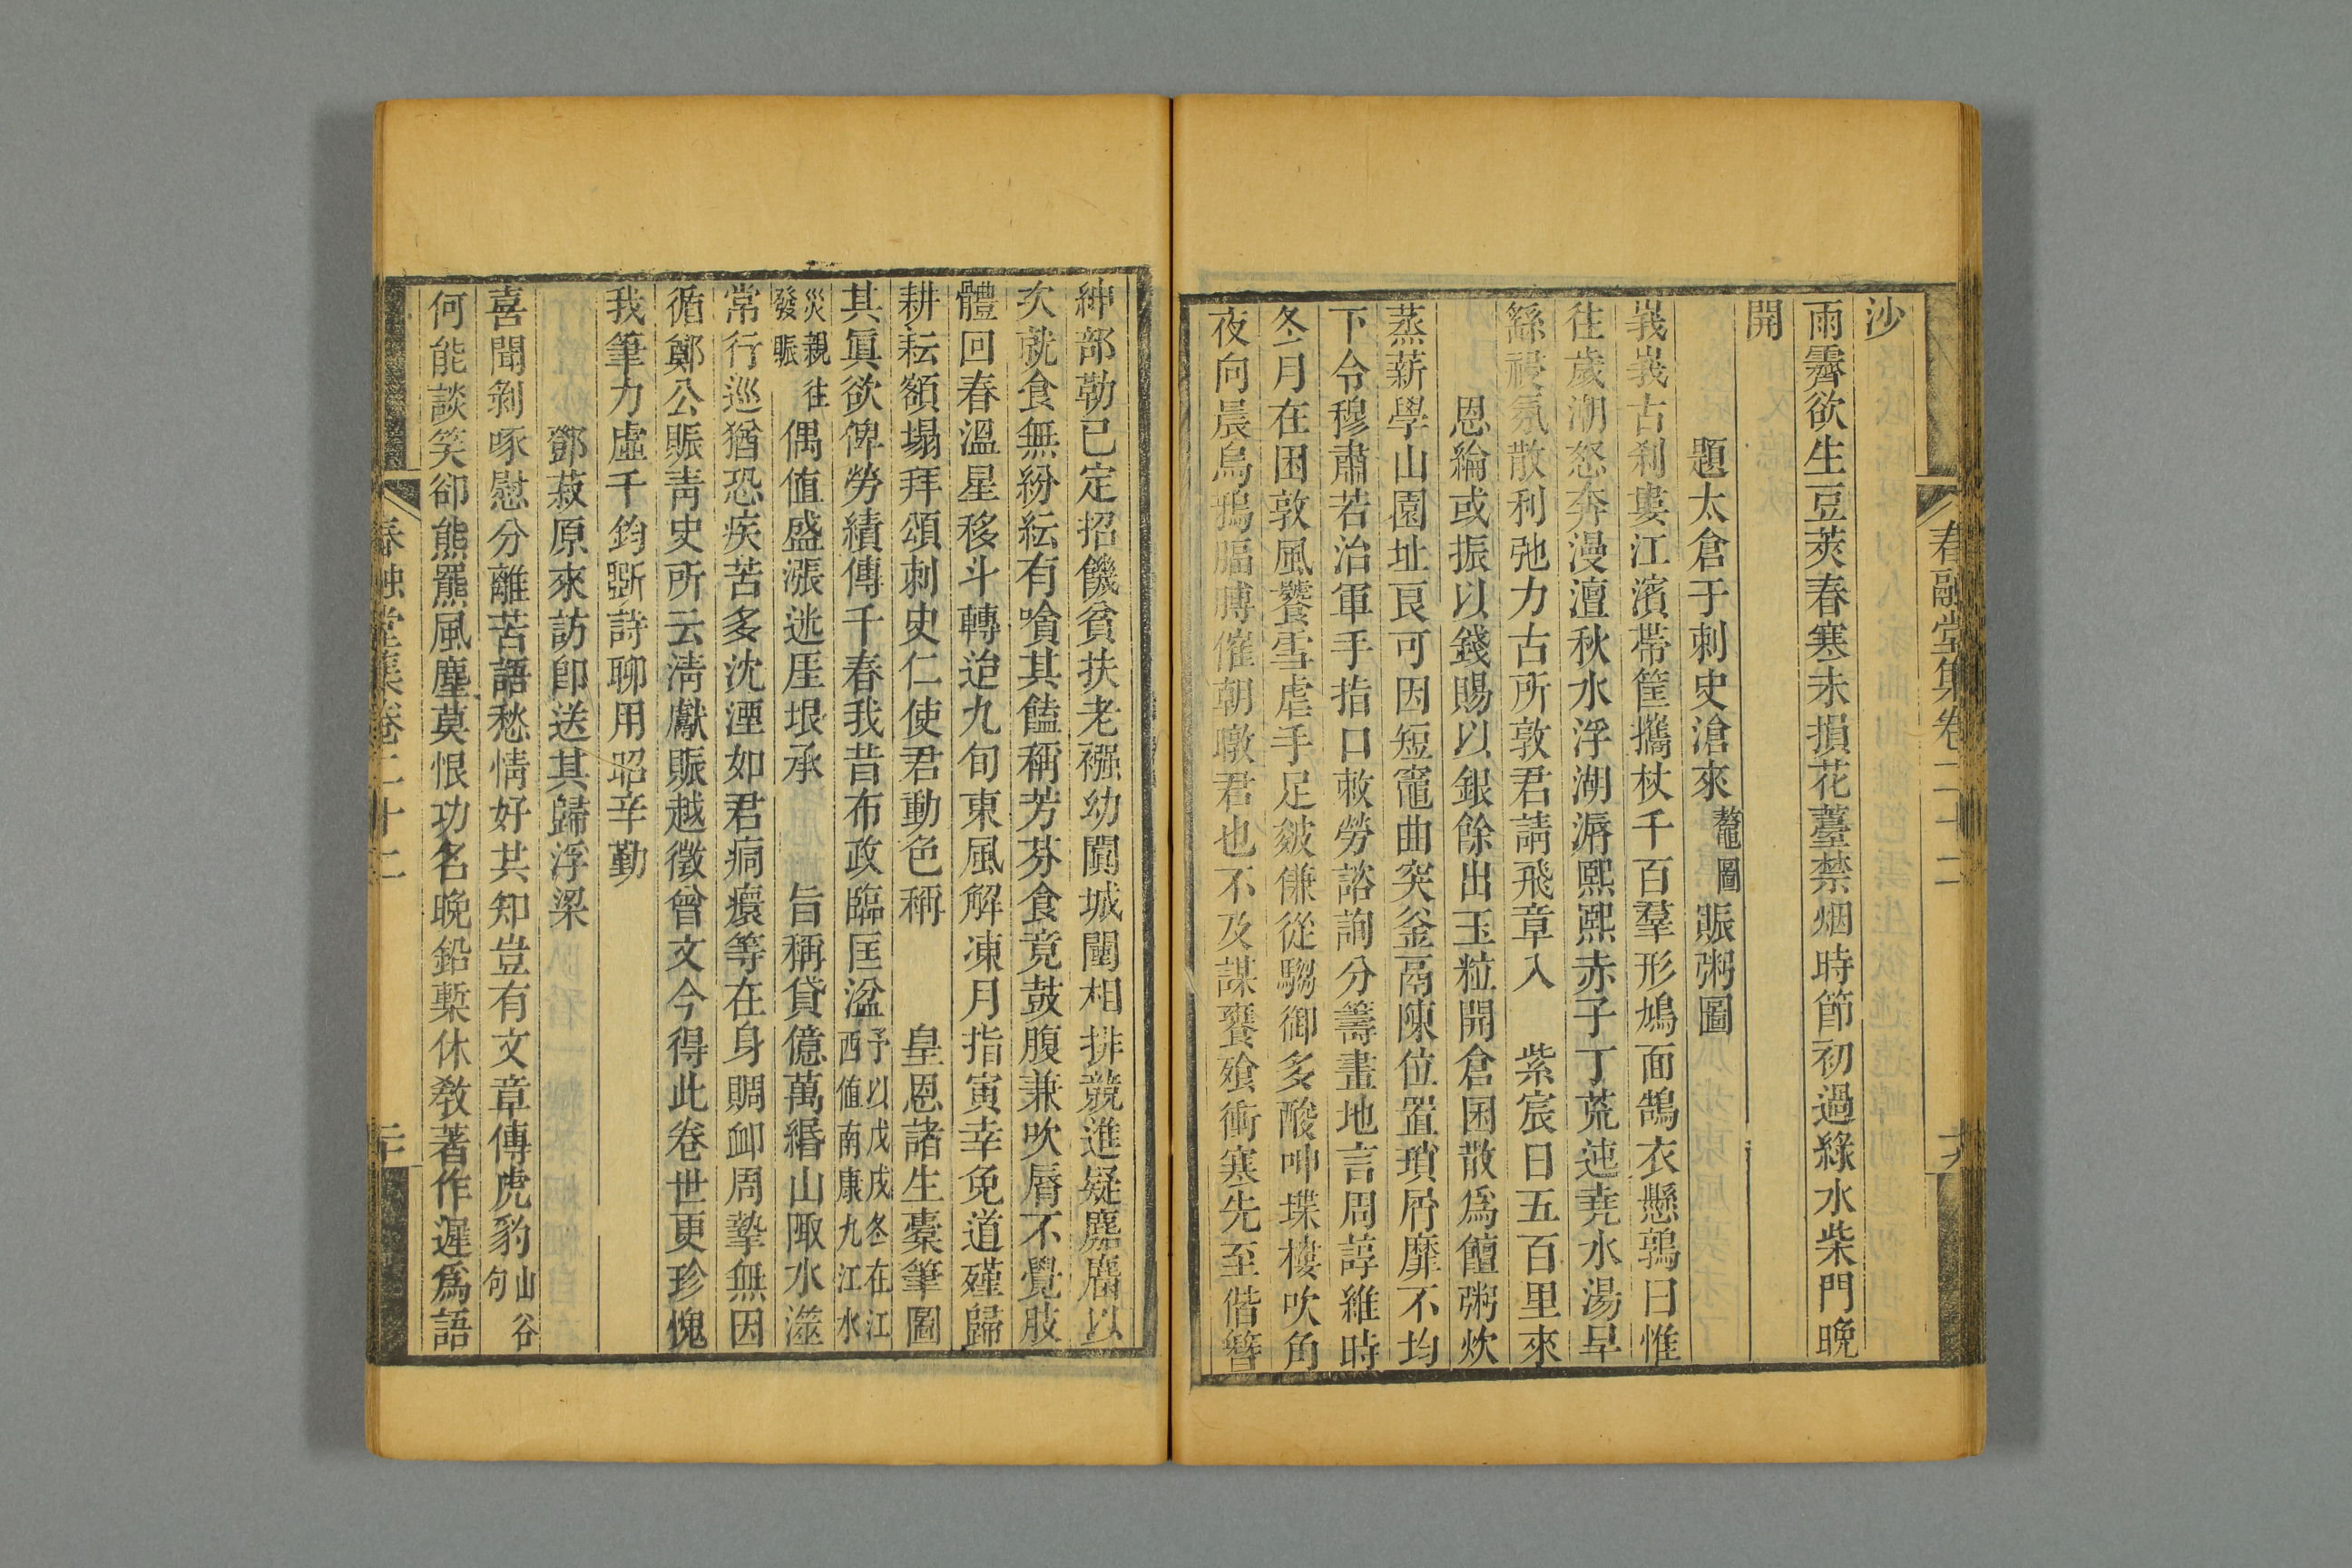 春融堂集卷二十二
沙
雨霽欲生豆莢春寒未損花薹禁烟時節初過綠水柴門晚
開
題太倉于刺史滄來鼇圖賑粥圖
峩峩古刹婁江濱帶筐攜杖千百羣形鳩面鵠衣懸鶉曰惟
往歲潮怒奔漫澶秋水浮湖漘熙熙赤子丁荒迍堯水湯旱
繇祲氛散利弛力古所敦君請飛章入 紫宸日五百里來
恩綸或振以錢賜以銀餘出玉粒開倉囷散爲饘粥炊
蒸薪學山園址艮可因短竈曲突釜鬲陳位置瑣屑靡不均
下令穆肅若治軍手指口敕勞諮詢分籌畫地言周諄維時
冬月在困敦風饕雪虐手足皴傔從騶御多酸呻堞樓吹角
夜向晨烏鴉腷膊催朝暾君也不及謀饔飧衝寒先至偕簪
紳部勒已定招饑貧扶老襁幼闐城闉相排競進疑麏麕以
次就食無紛紜有噲其饁稱芳芬食竟鼓腹兼吹脣不覺肢
體回春溫星移斗轉迨九旬東風解凍月指寅幸免道殣歸
耕耘額搨拜頌刺史仁使君動色稱 皇恩諸生橐筆圖
其眞欲俾勞績傳千春我昔布政臨匡湓予以戊戌冬在江西值南康九江水
災親往發賑偶值盛漲逃厓垠承 旨稱貸億萬緡山陬水澨
常行巡猶恐疾苦多沈湮如君痌瘝等在身賙卹周摯無因
循鄭公賑靑史所云淸獻賑越徵曾文今得此卷世更珍愧
我筆力虛千鈞斲詩聊用昭辛勤
鄧菽原來訪卽送其歸浮梁
喜聞剝啄慰分離苦語愁情好共知豈有文章傳虎豹山谷句
何能談笑卻熊羆風塵莫恨功名晚鉛槧休敎著作遲爲語
春融堂集卷二十二